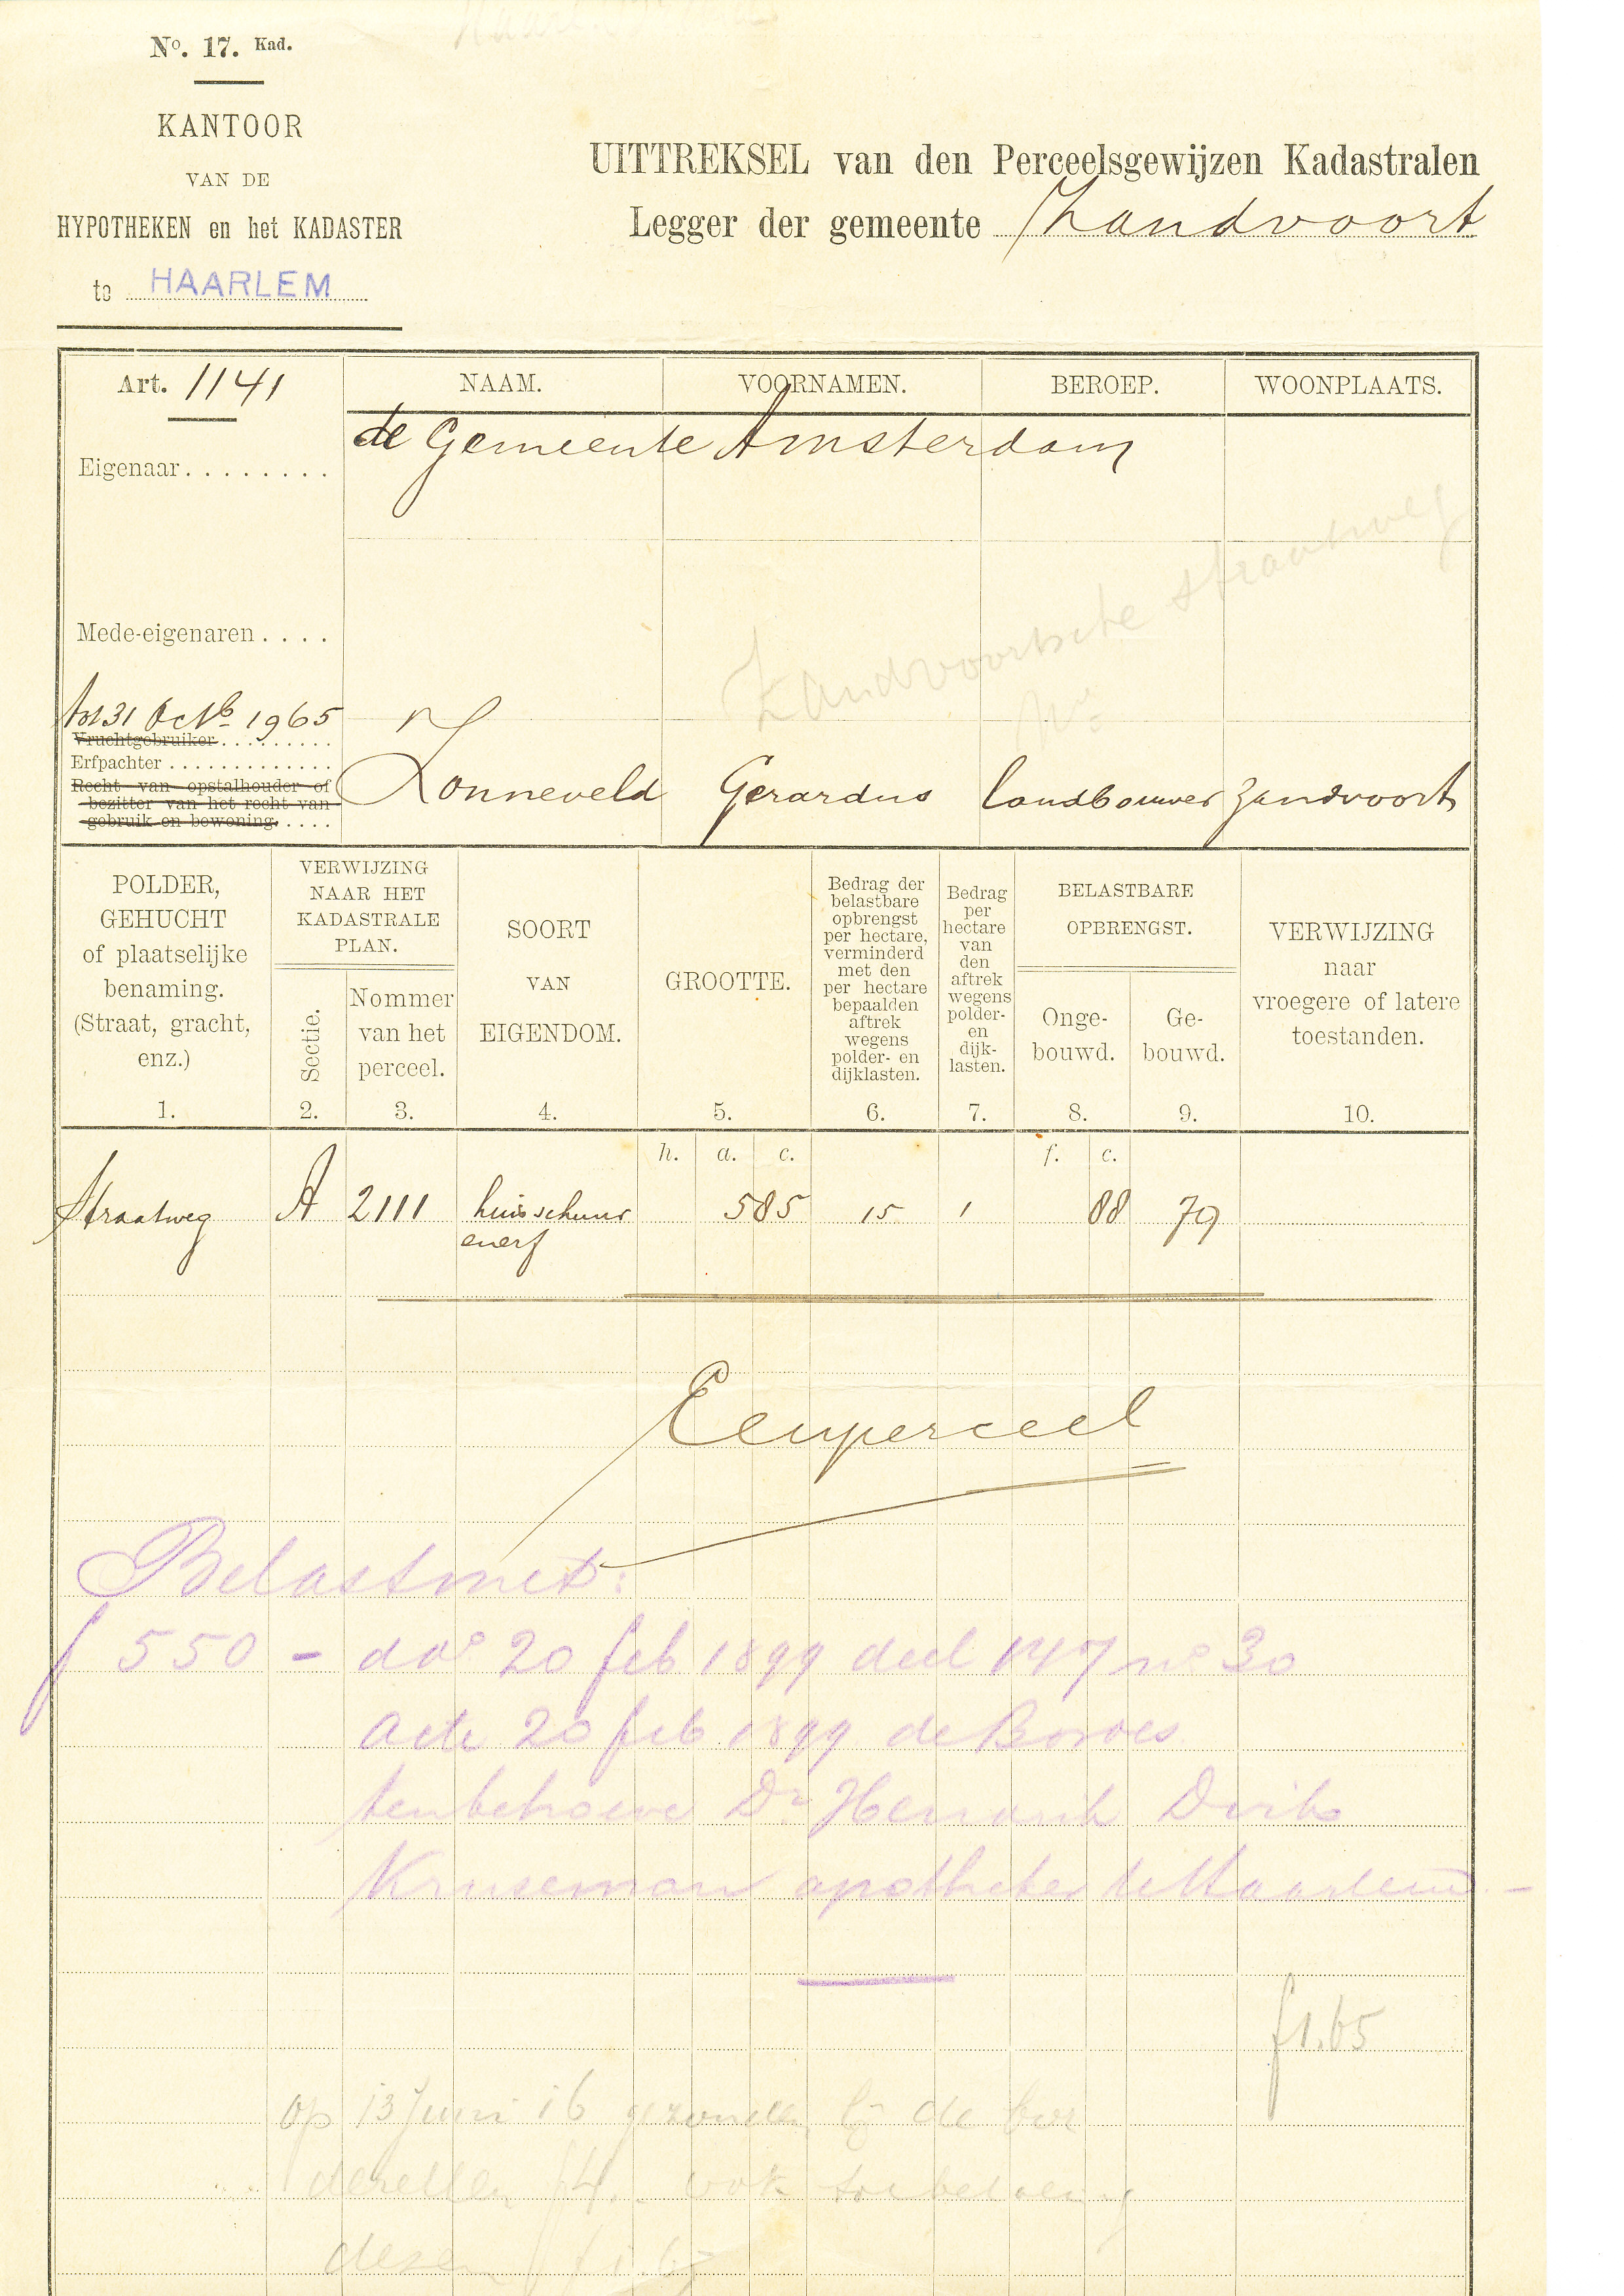 No. 17. Kad.
KANTOOR
VAN DE
HYPOTHEKEN en het KADASTER
te HAARLEM
UITTREKSEL van den Perceelsgewijzen Kadastralen
Legger der gemeente Zandvoort
Art. 1141
NAAM. VOORNAMEN. BEROEP. WOONPLAATS.
Eigenaar........ de Gemeente Amsterdam
Zandvoortsche straatweg
No
Mede-eigenaren....
tot 31 Octb 1965
Vruchtgebruiker.........
Erfpachter............. Zonneveld Gerardus landbouwer Zandvoort
Recht van opstalhouder of
bezitter van het recht van
gebruik en bewoning.....
POLDER,
GEHUCHT
of plaatselijke
benaming.
(Straat, gracht,
enz.)
1.
VERWIJZING
NAAR HET
KADASTRALE
PLAN.
Sectie.
2.
Nommer
van het
perceel.
3.
SOORT
VAN
EIGENDOM.
4.
GROOTTE.
5.
Bedrag der
belastbare
opbrengst
per hectare,
verminderd
met den
per hectare
bepaalden
aftrek
wegens
polder- en
dijklasten.
6.
Bedrag
per
hectare
van
den
aftrek
wegens
polder-
en
dijk-
lasten.
7.
BELASTBARE
OPBRENGST.
Onge-
bouwd.
8.
Ge-
bouwd.
9.
VERWIJZING
naar
vroegere of latere
toestanden.
10.
h. a. c. f. c.
Straatweg A 2111 huis schuur 585 15 1 88 79
en erf
Een perceel
Belast met:
f 550 - do 20 feb 1899 deel 147 no 30
acte 20 feb 1899 de
ten behoeve Dr Hendrik Dirk
Kruseman apotheker te Haarlem -
f 1.65
op 13 Juni 16 gezonden bij de
f 4.
dezen